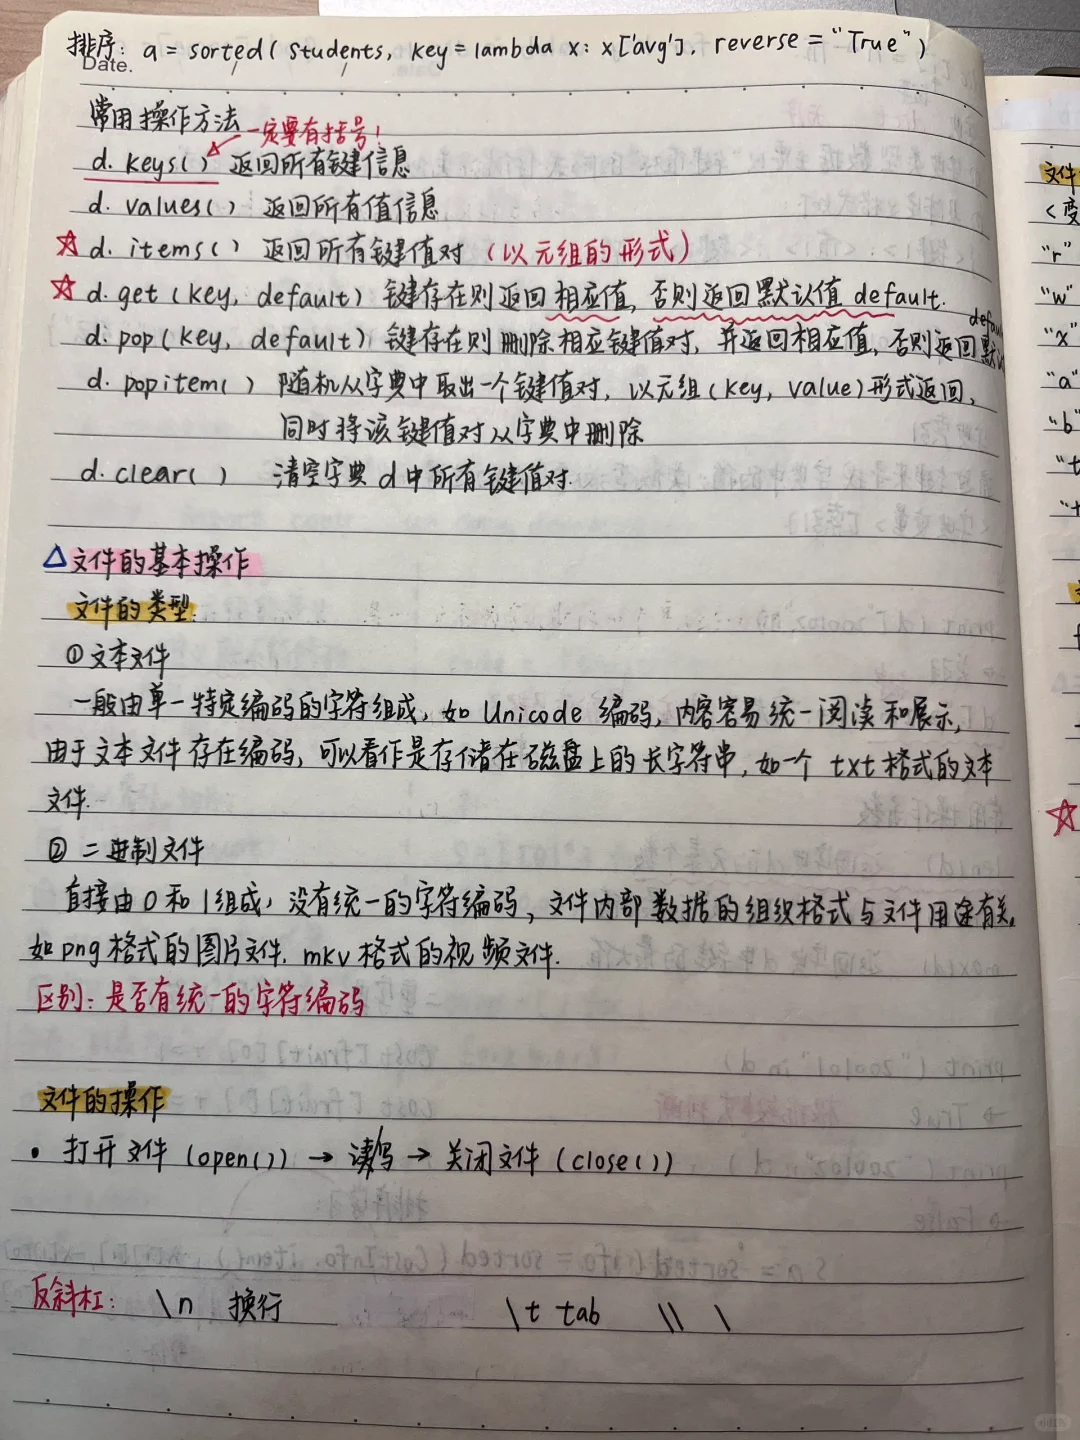 排序: a = sorted( students, key = lambda x: x['avg'], reverse = "True" )
Date.
常用操作方法
一定要有括号!
d. keys( ) 返回所有键信息
d. values( ) 返回所有值信息
☆ d. items( ) 返回所有键值对 (以元组的形式)
☆ d. get (key, default) 键存在则返回相应值, 否则返回默认值 default.
d. pop(key, default) 键存在则删除相应键值对, 并返回相应值, 否则返回默认
d. popitem( ) 随机从字典中取出一个键值对, 以元组(key, value)形式返回,
同时将该键值对从字典中删除
d. clear( ) 清空字典 d 中所有键值对.
△文件的基本操作
文件的类型
①文本文件
一般由单一特定编码的字符组成, 如 Unicode 编码, 内容容易统一阅读和展示,
由于文本文件存在编码, 可以看作是存储在磁盘上的长字符串, 如一个 txt 格式的文本
文件.
② 二进制文件
直接由 0 和 1 组成, 没有统一的字符编码, 文件内部数据的组织格式与文件用途有关,
如 png 格式的图片文件. mkv 格式的视频文件.
区别: 是否有统一的字符编码
文件的操作
• 打开文件 (open()) → 读写 → 关闭文件 (close())
反斜杠: \n 换行 \t tab \\ \
文件
<变
"r"
"w"
"x"
"a"
"b"
☆